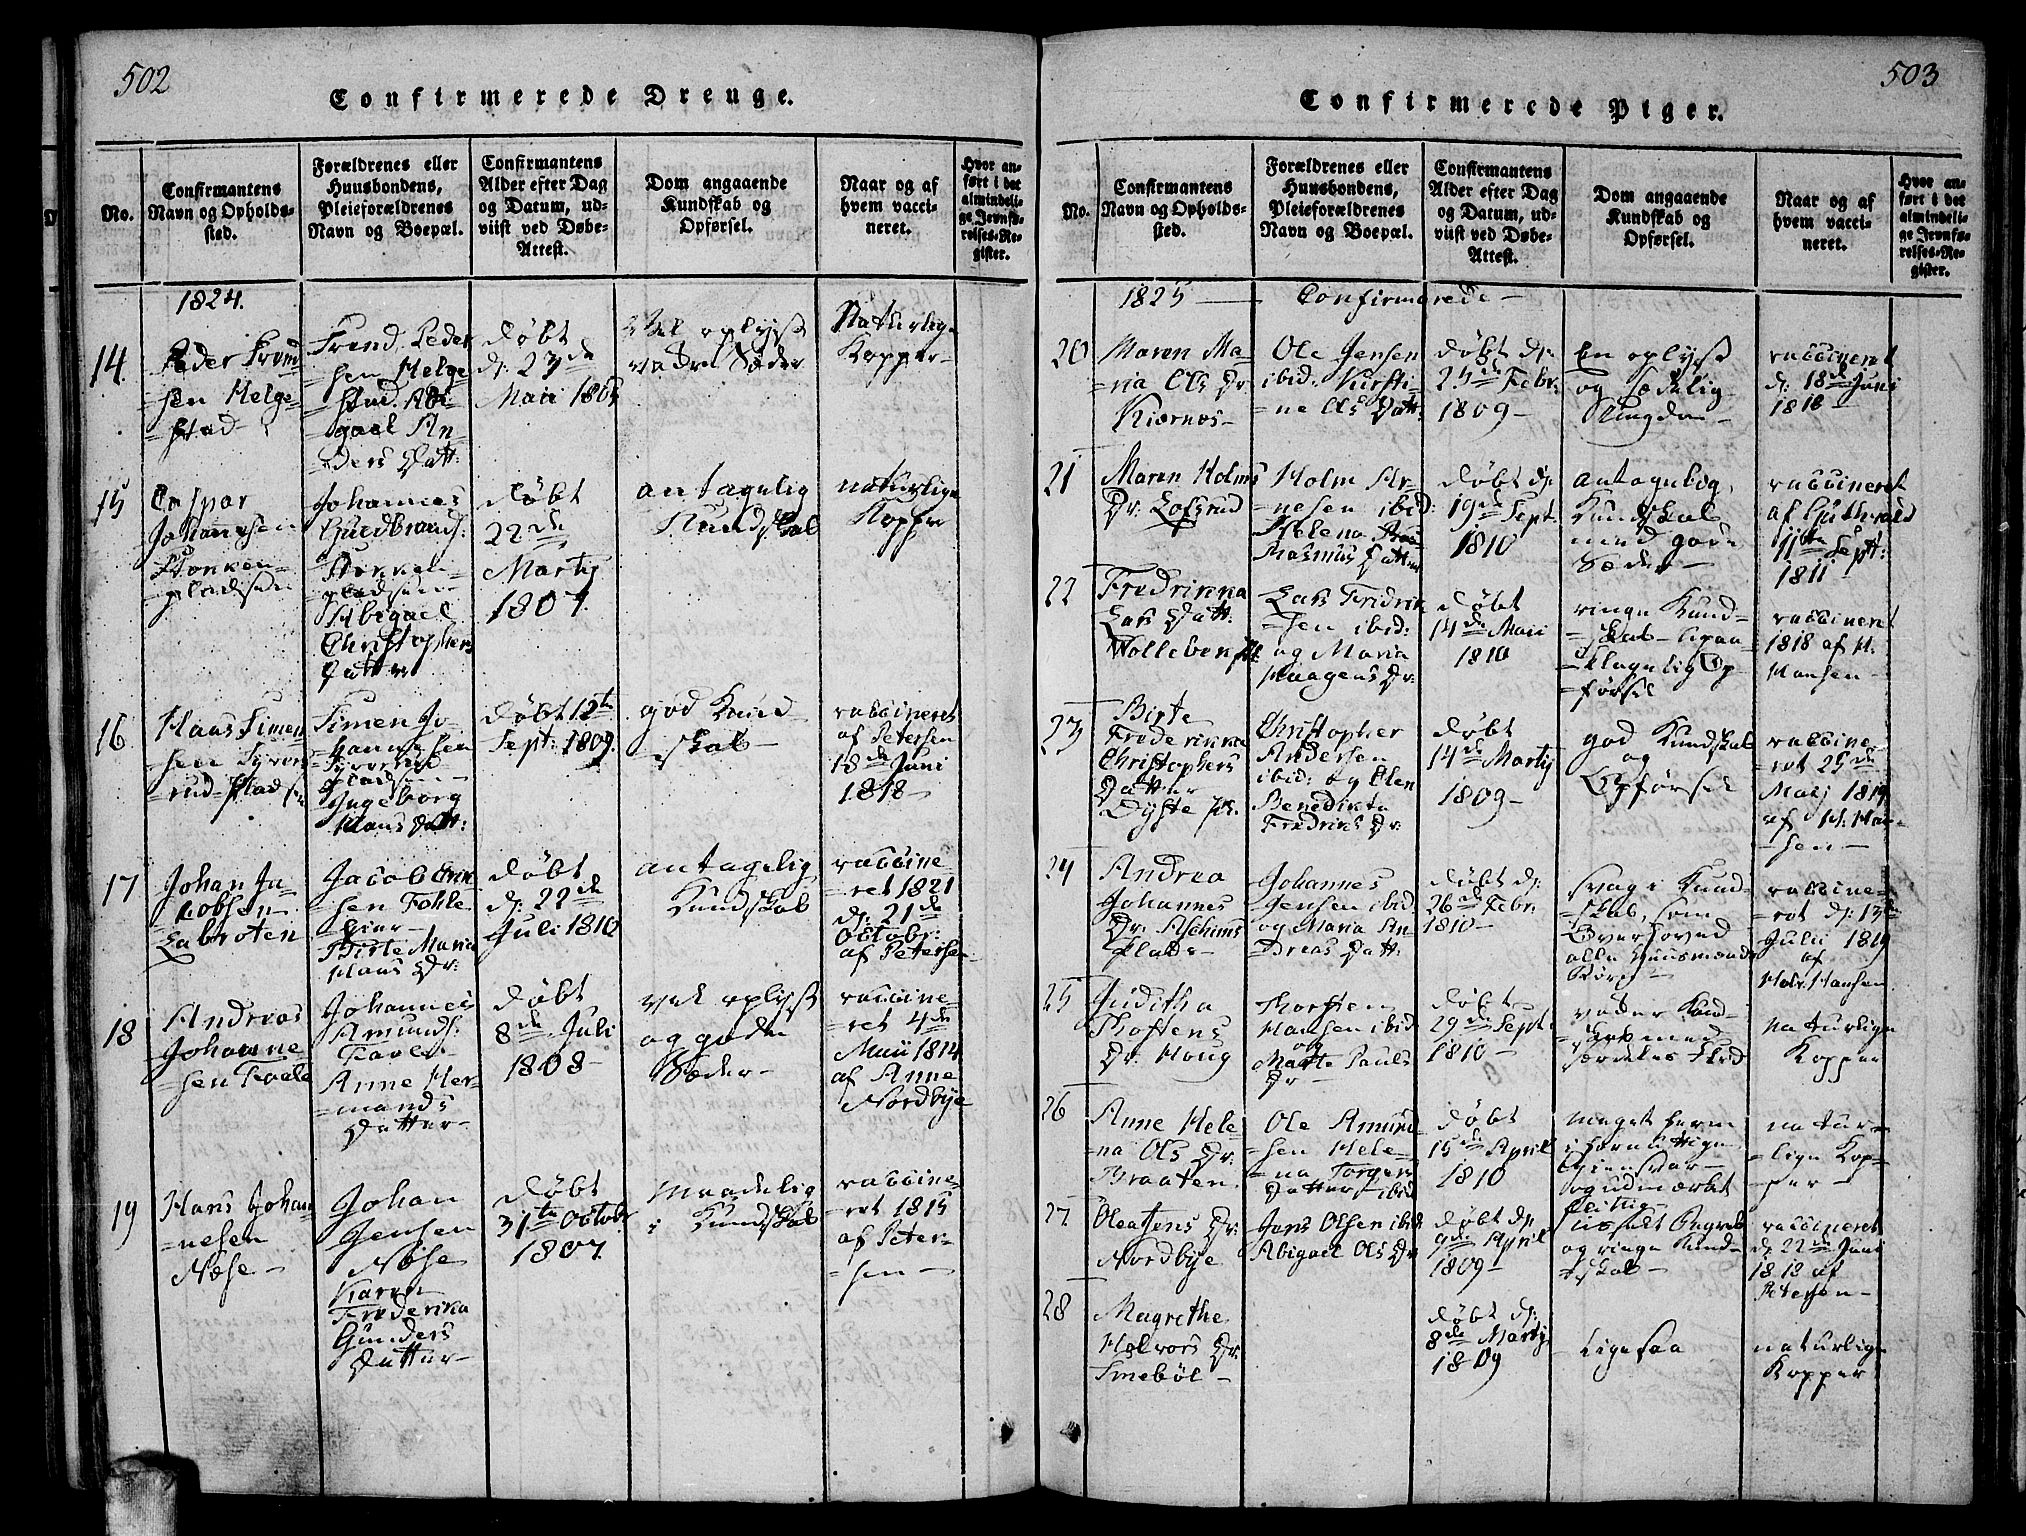 502
Confirmerede Drenge.
No.
Confirmantens
Navn og Opholds-
sted.
Forældrenes eller
Huusbondens,
Pleieforældrenes
Navn og Boepæl.
Confirmantens
Alder efter Dag
og Datum, ud-
viist ved Døbe-
Attest.
Dom angaaende
Kundskab og
Opførsel.
Naar og af
hvem vacci-
neret.
Hvor an-
ført i det
almindeli-
ge Jevnfø-
relses-Re-
gister.
1824.
14
Peder Frend
sen Helge-
=stad
Frend Peder
=sen Helge
=stad. Abi
=gael An-
ders Datt:
døbt
d: 23de
Maii 180
Vel oplyst
Sæder
Naturlige
Kopper
15
Caspar
Johannesen
pladsen
Johannes
Guldbrands:
pladsen
Abigael
Christophers
Datter
døbt
22de
Martij
1807.
antagelig
Kundskab
naturlige
Kopper
16
Hans Simen
=sen
Simen Jo-
=hannesen
Ingeborg
Hans Datt:
døbt 12te
Sept: 1809
god Kund
=skab
vaccineret
af Petersen
18de Juni
1818
17
Johan Ja-
=cobsen
Labroten
Jacob
=sen
Birte Maria
Hans Dr:
døbt
d: 22de
Juli 1810
antagelig
Kundskab
vaccine
=ret 1821
d: 21de
Octobr:
af Petersen
18
Andreas
Johanne
=sen
Johannes
Amunds:
Anne Her-
=mands
Datter
døbt
8de Juli
1808
vel oplyst
og gode
Sæder
vaccine-
=ret 4de
Maii 1814
af Anne
Nordbye
19
Hans Johan
=nesen
Næse
Johan
Jensen
Næse
Karen
Frederica
Gunders
Datter
døbt
31te October
1807
Maadelig
Kundskab
vaccine-
=ret 1815
af Peter-
=sen
503
Confirmerede Piger.
No.
Confirmantens
Navn og Opholds-
sted.
Forældrenes eller
Huusbondens,
Pleieforældrenes
Navn og Boepæl.
Confirmantens
Alder efter Dag
og Datum, ud-
viist ved Døbe-
Attest.
Dom angaaende
Kundskab og
Opførsel.
Naar og af
hvem vacci-
neret.
Hvor an-
ført i det
almindeli-
ge Jevnfø-
relses-Re-
gister.
1825 Confirmerede
20
Maren Ma-
=ria Ols Dr
Kiærnes
Ole Jensen
ibid: Kirsti-
=ne Ols Datt:
døbt d:
25de Febr:
1809
En oplyst
og sædelig
Ungdom
vaccineret
d: 18de Juni
1818
21
Maren Holms
Dr: Lofsrud
Holm Ar-
=nesen ibid:
Helena
Rasmus Datter
døbt d:
19de Sept.
1810
antagelig
Kundskab
med gode
Sæder
vaccineret
af
11te Sept:
1811
22
Fredricka
Lars Datt:
Lars Fridrik
=sen ibid:
og Maria
Haagens Dr:
døbt
14de Maii
1810
ringe Kund-
=skab
=klagelig Op
=førsel
vaccineret
1818 af H.
Hansen
23
Birte
Frederikka
Christophers
Datter
Christopher
Andersen
ibid: og Elen
Benedikta
Fredriks Dr:
døbt
14de Martij
1809
god Kundskab
og
Opførsel
vaccine-
=ret 25de
Maij 1819
af H. Han-
=sen
24
Andrea
Johannes
Dr:
Plads
Johannes
Jensen ibid
og Maria An
dreas Datt:
døbt d:
26de Febr:
1810
svag i Kund-
=skab, som
Overhoved
alle Huusmænds
Børn
vaccine-
=ret d: 13de
Julii 1819
af
Halv. Hansen
25
Juditha
Thostens
Dr: Houg
Thorsten
Hansen ibid
og
Marte Pauls
Dr
døbt d:
29de Sept
1810
med
særdeles Flid
naturlige
Kopper
26
Anne Hele-
=na Ols Dr:
Braaten
Ole Amund
=sen Hele-
=na Torgers
Datter ibid
døbt
15de April
1810
meget
og udmærket
flittig
natur-
=lige Kop-
=per
27
Olea Jens Dr:
Nordbye
Jens Olsen ibid
Abigael Ols Dr
døbt d:
9de April
1809
og ringe Kund-
=skab
vaccineret
d: 22de Juni
1818 af
Petersen
28
Magrethe
Halvors Dr:
Smebøl
døbt d:
8de Martij
1809
Ligesaa
naturlige
Kopper